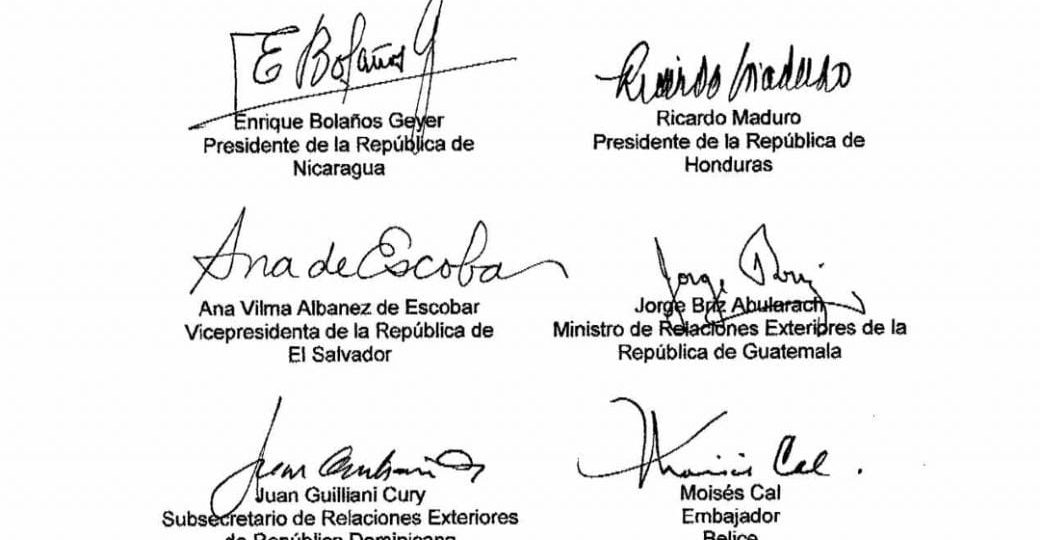 E Bolaños G
Enrique Bolaños Geyer
Presidente de la República de
Nicaragua
Ricardo Maduro
Ricardo Maduro
Presidente de la República de
Honduras
Ana de Escobar
Ana Vilma Albanez de Escobar
Vicepresidenta de la República de
El Salvador
Jorge Briz
Jorge Briz Abularach
Ministro de Relaciones Exteriores de la
República de Guatemala
Juan
Juan Guilliani Cury
Subsecretario de Relaciones Exteriores
de República Dominicana
Cal
Moisés Cal
Embajador
Belice